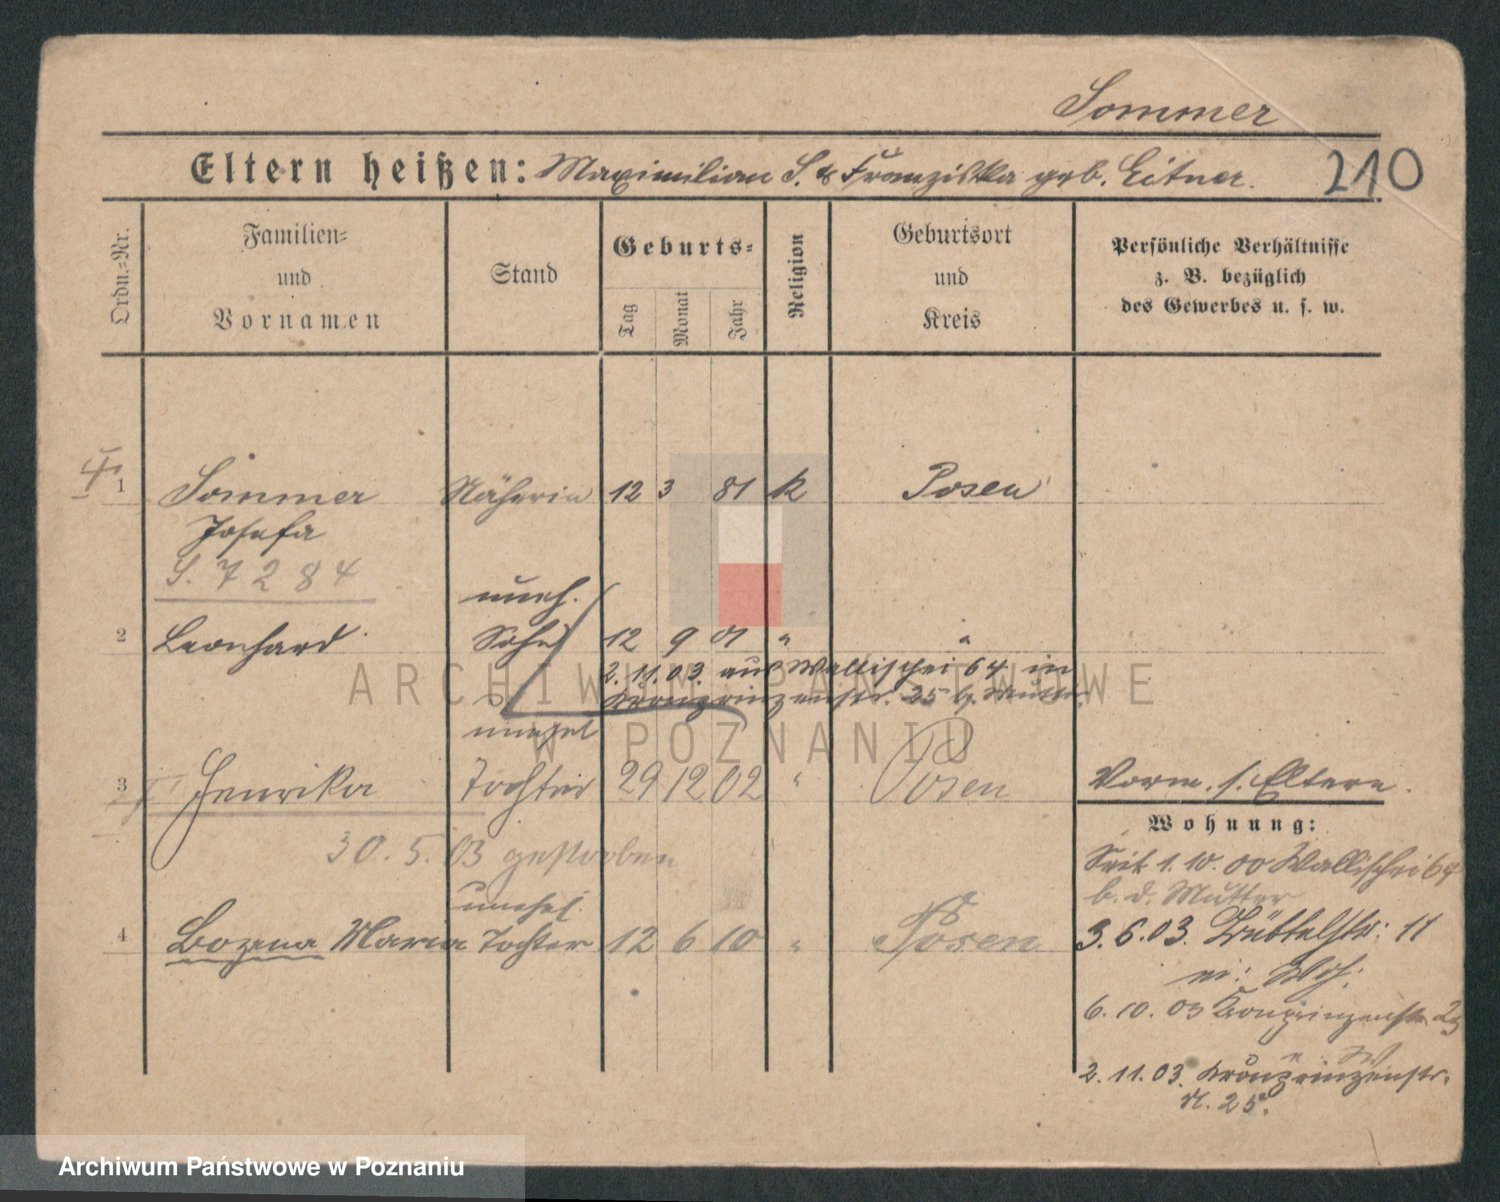 Sommer
Eltern heißen: Maximilian S. & Franziska geb. Eitner.
210
Ordn.-Nr.
Familien-
und
Vornamen
Stand
Geburts-
Tag
Monat
Jahr
Religion
Geburtsort
und
Kreis
Persönliche Verhältnisse
z. B. bezüglich
des Gewerbes u. s. w.
1 Sommer Näherin 12 3 81 k Posen
Josefa
S. 7284
uneh.
2 Leonhard Sohn 12 9 01 " "
2.11.03. aus Wallischei 64 in
Kronprinzenstr. 25 b. Mutter.
unehel
3 Henrika Tochter 29 12 02 " Posen
Vorm. s. Eltern.
30.5.03 gestorben
Wohnung:
Seit 1.10.00 Wallischei 64
b. d. Mutter
unehel.
4 Bozena Maria Tochter 12 6 10 " Posen
3.6.03. Büttelstr: 11
6.10.03 Kronprinzenstr. 25
2.11.03. Kronprinzenstr.
N. 25.
ARCHIWUM PAŃSTWOWE
W POZNANIU
Archiwum Państwowe w Poznaniu